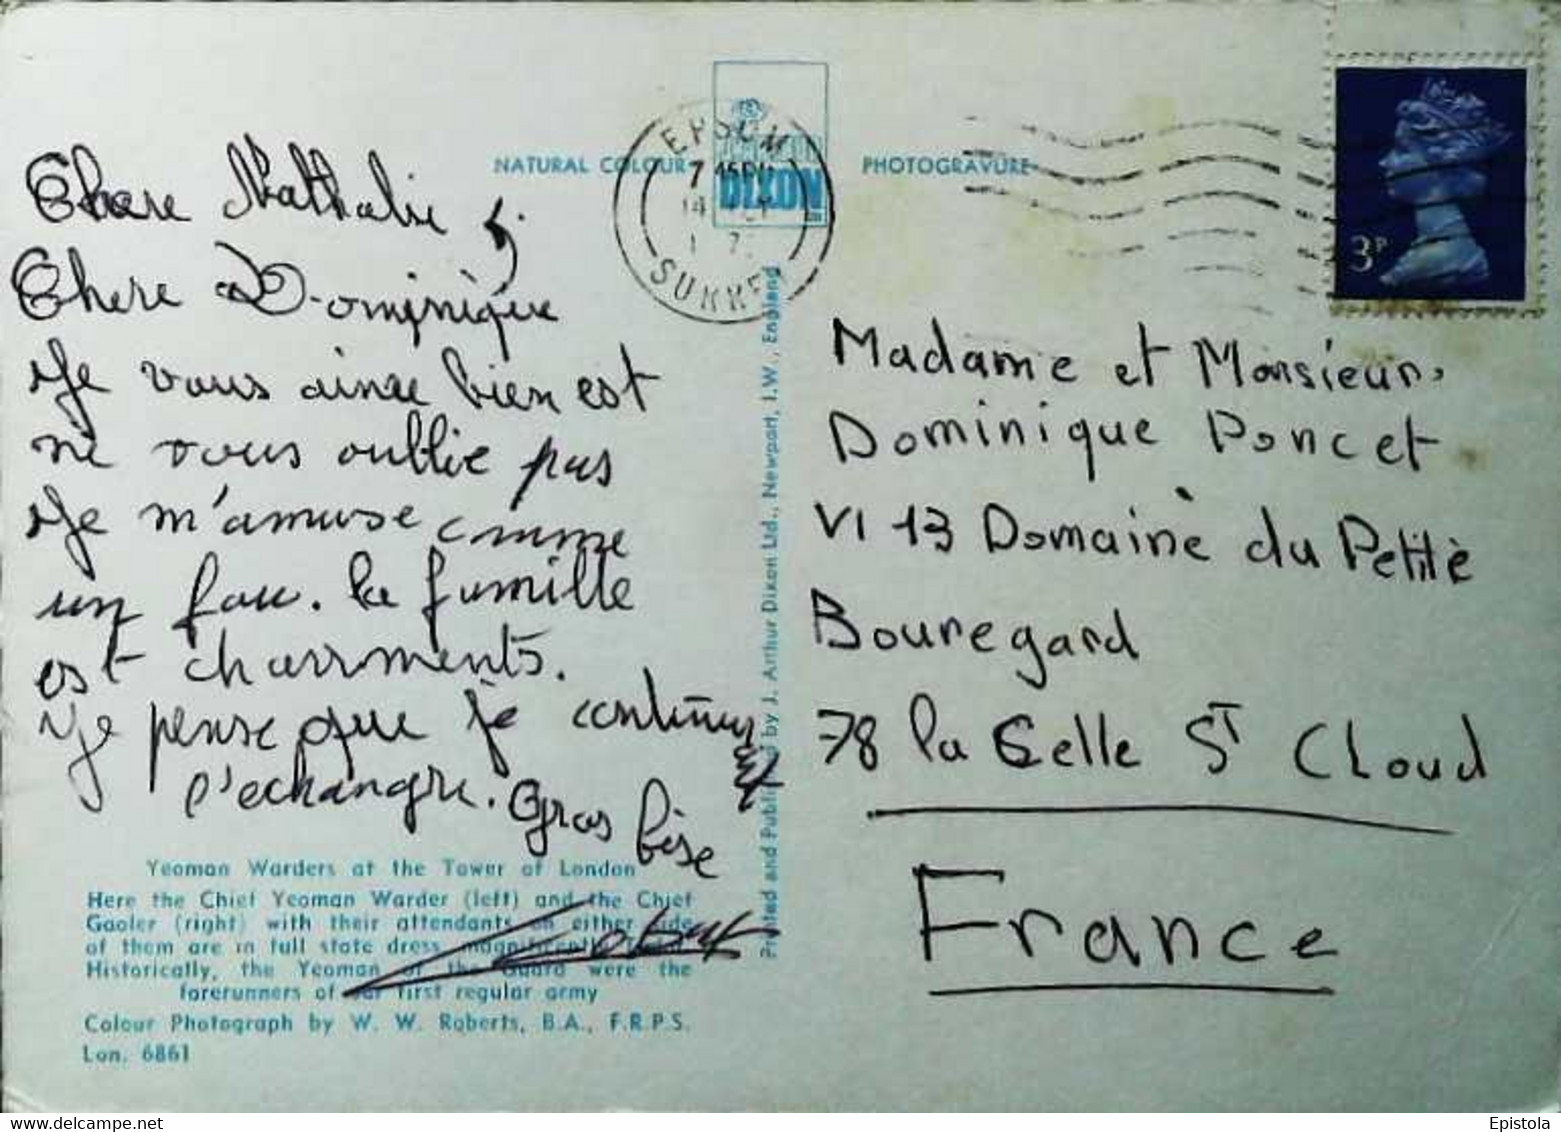 NATURAL COLOUR
PHOTOGRAVURE
DIXON
EPSOM
SURREY
3P
Chere Nathalie
Chere Dominique
Je vous aime bien est
ne vous oublie pas
Je m'amuse comme
un fou. la famille
est charments.
Je pense que je continuer
l'echangre. Gros bise
Yeoman Warders at the Tower of London
Here the Chief Yeoman Warder (left) and the Chief
Gaoler (right) with their attendants on either side
of them are in full state dress,
Historically, the Yeoman of the Guard were the
forerunners of our first regular army
Colour Photograph by W. W. Roberts, B.A., F.R.P.S.
Lon. 6861
Printed and Published by J. Arthur Dixon Ltd., Newport, I.W., England
Madame et Monsieur
Dominique Poncet
VI 13 Domaine du Petite
Bouregard
78 la Celle ST Cloud
France
Epistola